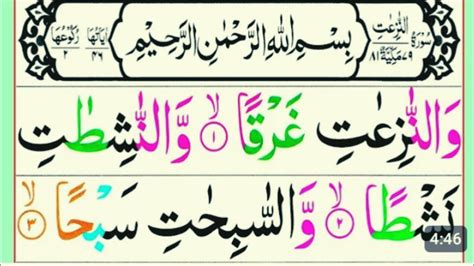 سُوْرَةُ النّٰزِعٰتِ مَكِّيَّةٌ ٧٩ ٨١
بِسْمِ اللّٰهِ الرَّحْمٰنِ الرَّحِيْمِ
اٰيَاتُهَا ٤٦ رُكُوْعُهَا ٢
وَالنّٰزِعٰتِ غَرْقًا ۙ﴿١﴾ وَّالنّٰشِطٰتِ
نَشْطًا ۙ﴿٢﴾ وَّالسّٰبِحٰتِ سَبْحًا ۙ﴿٣﴾
4:46